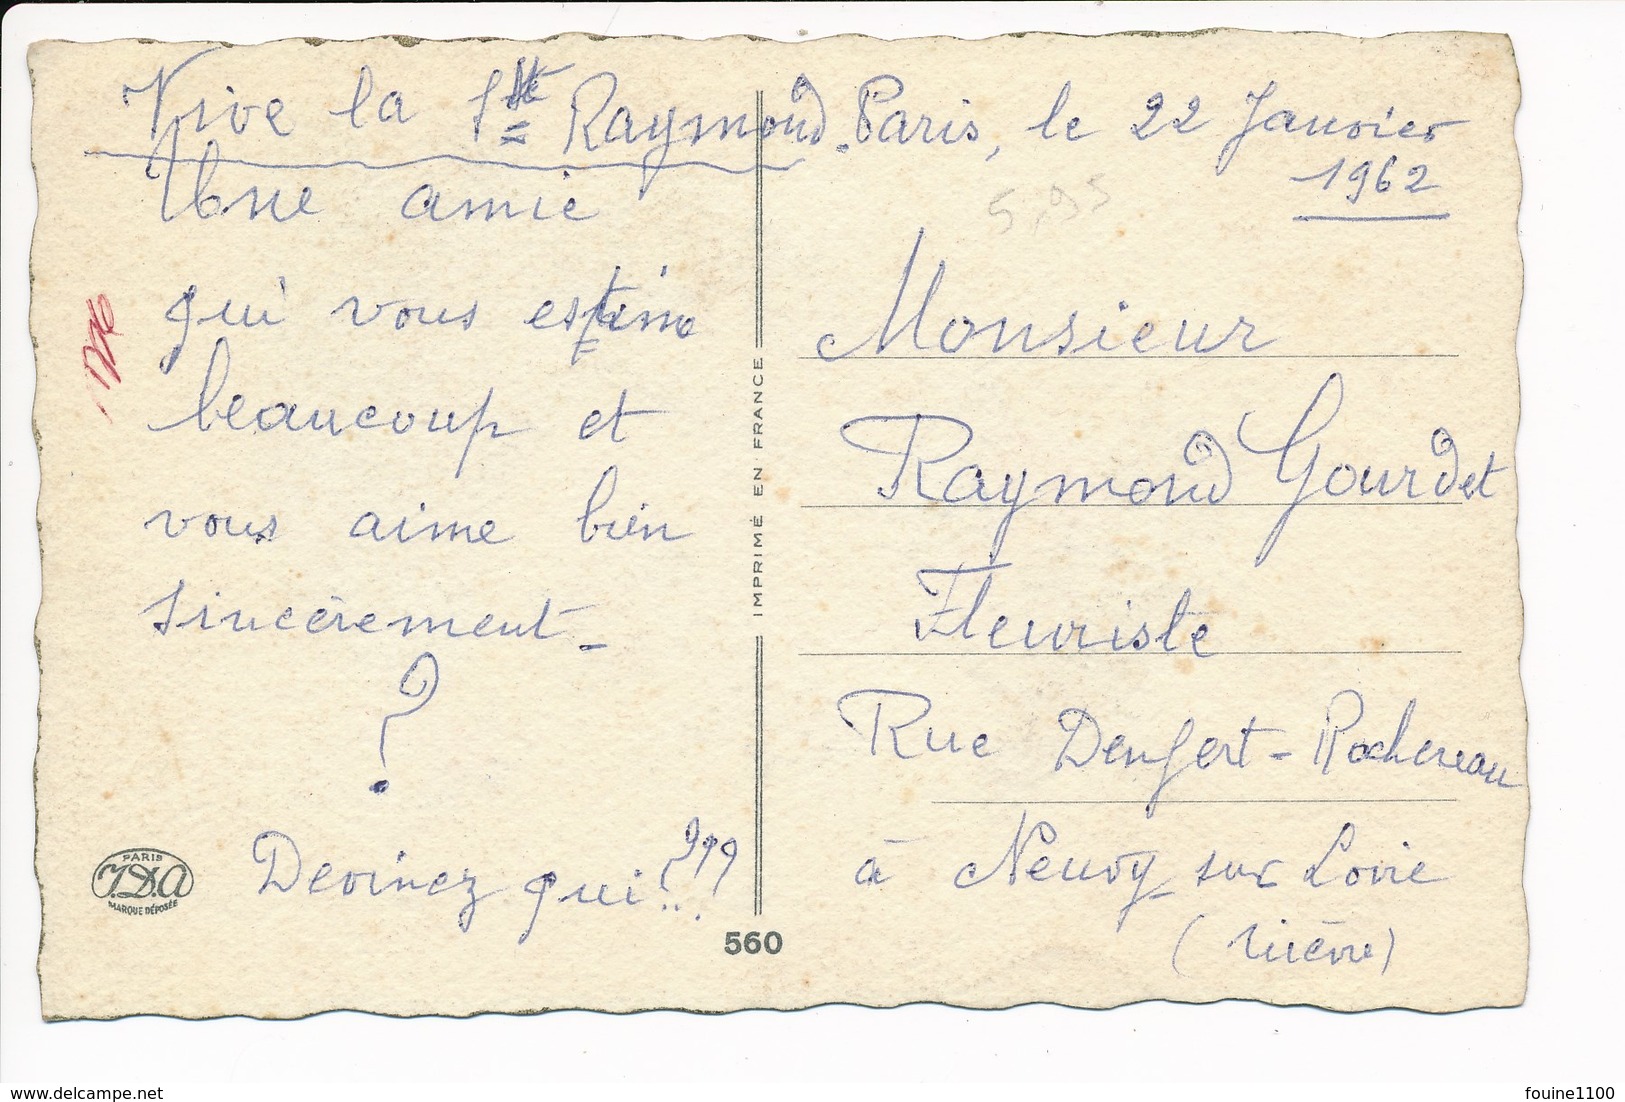 Vive la Ste Raymond. Paris, le 22 Janvier
1962
Une amie
qui vous estime
beaucoup et
vous aime bien
sincèrement_
?
Devinez qui..???
5,95
Monsieur
Raymond Gourdet
Fleuriste
Rue Denfert-Rochereau
à Neuvy sur Loire
(Nièvre)
IMPRIMÉ EN FRANCE
PARIS
J.D.A
MARQUE DÉPOSÉE
560
delcampe.net
fouine1100